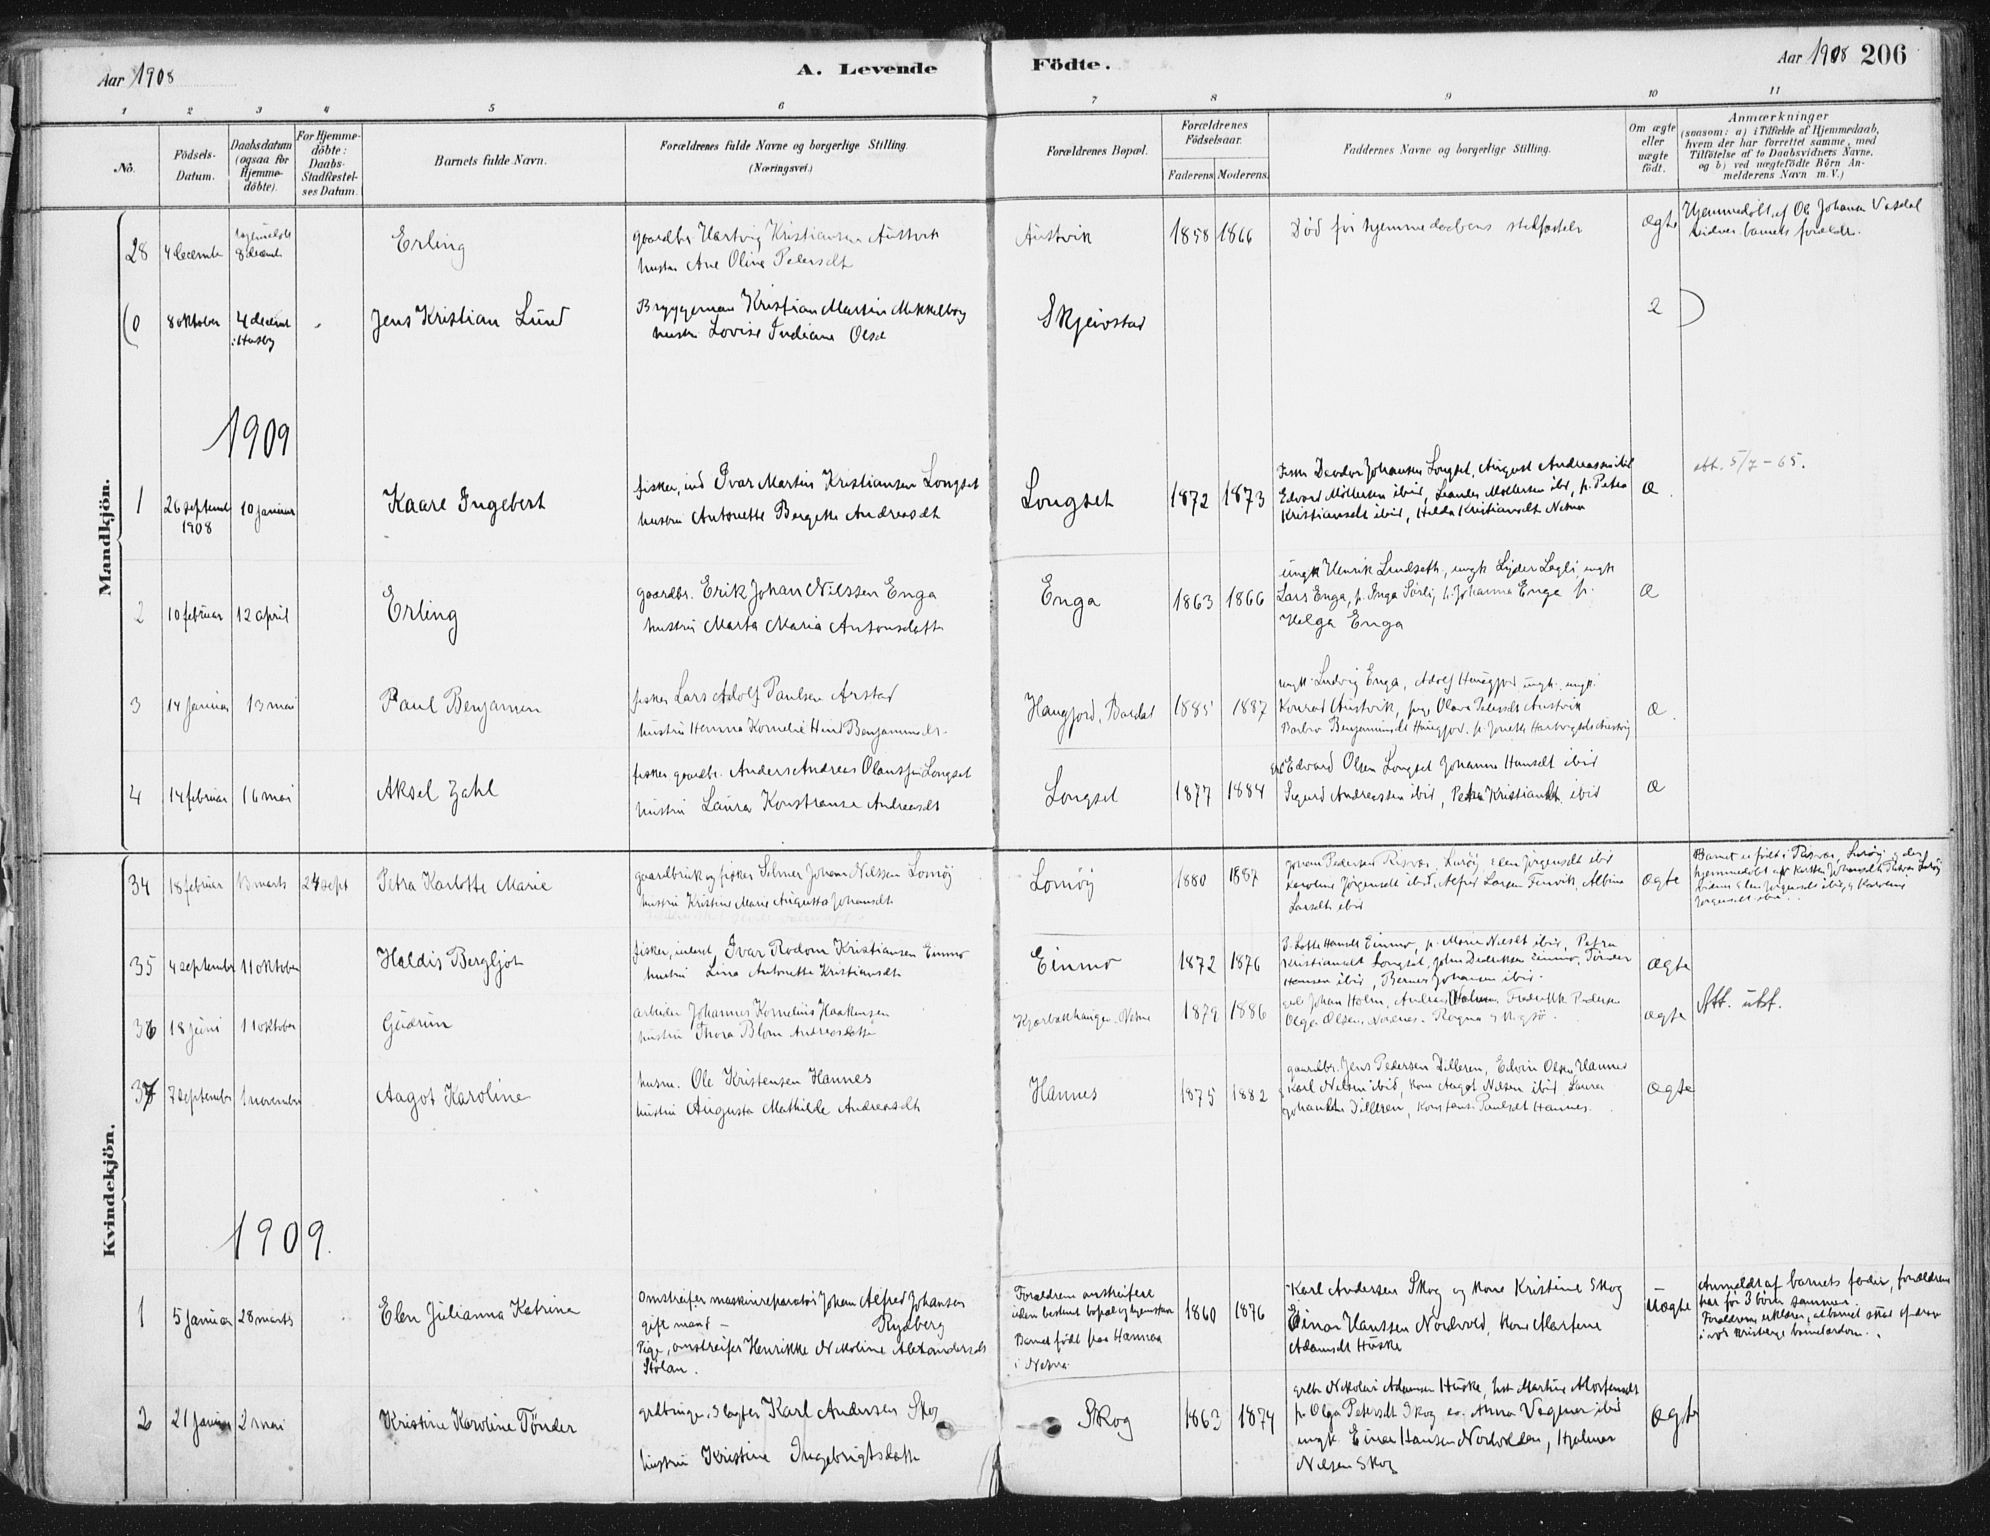 Aar 1908
A. Levende
Födte.
Aar 1908 206
1 2 3 4 5 6 7 8 9 10 11
No.
Födsels-
Datum.
Daabsdatum
(ogsaa for
Hjemme-
döbte).
For Hjemme-
döbte:
Daabs-
Stadfæstel-
ses Datum.
Barnets fulde Navn.
Forældrenes fulde Navne og borgerlige Stilling.
(Næringsvei.)
Forældrenes Bopæl.
Forældrenes
Födselsaar.
Faderens. Moderens.
Faddernes Navne og borgerlige Stilling.
Om ægte
eller
uægte
födt.
Anmærkninger
(saasom: a) i Tilfælde af Hjemmedaab,
hvem der har forrettet samme, med
Tilföielse af to Daabsvidners Navne,
og b) ved uægtefödte Börn An-
melderens Navn m. V.)
Mandkjön.
28 4 december
8 decemb
Erling
gaardbr Hartvig Kristiansen Austvik
hustru Ane Oline Petersdt
Austvik
1858 1866
Död för hjemmedaabens
ægte
Hjemmedöbt af Ole Johansen
barnets forældre.
0 8 oktober 4 decemb
i Husby
Jens Kristian Lund
Bryggeman Kristian Martin Mekkelborg
hustru Lovise Indiane Olsd
Skjeivstad
2
1909
1 26 septemb
1908
10 januar
Kaare Ingebert
fisker, ind Ivar Martin Kristiansen Longset
hustru Antonette Bergette Andreasdt
Longset
1872 1873
Johansen Longset, August Andreassen ibid
Edvard Möllersen ibid, Leander Möllersen ibd, p. Petra
Kristiansdt ibid, Hilda Kristiansdt Nesna
æ.
5/7-65.
2 10 februar 12 april
Erling
gaardbr. Erik Johan Nilssen Enga
hustru Marta Maria Antonsdatter
Enga
1863 1866
ungk Henrik Lindseth, ungk Lyder Lagli, ungk
Lars Enga, p. Inga Sörli, p. Johanna Enga p.
Helga Enga
æ
3 14 januar 13 mai
Paul Benjamin
fisker Lars Adolf Paulsen Arstad
hustru Henna Kornelie Hind Benjaminsdt.
Haugfjord, Bardal
1885 1887
ungk. Ludvig Enga, Adolf Haugfjord ungk. ungk.
Konrad Austvik, pige Olava Petersdt Austvik
Barbro Benjaminsdt Haugfjor. p.
æ.
4 14 februar 16 mai
Aksel Zahl
fisker gaardbr. Anders Andreas Longset
hustru Laura Konstanse Andreasdt
Longset
1877 1884
Edvard Olsen Longset Johanna Hansdt ibid
Sigurd Andreassen ibid, Petra Kristiansdt. ibid
æ
Kvindekjön.
34 18 februar 13 marts 24 sept
Petra Karlotte Marie
gaardbruk og fisker Selmer Johan Nilssen Lomöy
hustru Kristine Marie Augusta Johansdt
Lomöy
1880 1887
Johan Pedersen Risvær, Luröy, Elen Jörgensdt ibid
Karoline Jörgensdt ibid, Alfred Larsen Finvik, Albine
Larsdt ibid
ægte
Barnet er födt i Risvær, Luröy og der
hjemmedöbt
Elen Jörgensdt ibid, Karoline
Jörgensdt ibid.
35 4 september 11 oktober
Haldis Bergljot
fisker, inderst, Ivar Rodom Kristiansen Einmo
hustru Lina Antonette Kristiansdt
Einmo
1872 1876
Lotte Hansdt Einmo, p. Marie Nilsdt ibid, Petra
Kristiansdt Longset, John Dedriksen Einmo, Tönder
Hansen ibid, Bernes Johansen ibid.
ægte
36 18 juni 11 oktober
Gudrun
arbeider Johannes Kornelius Haakensen
hustru Thora Blom Andreasdatter
Nesna
1879 1886
Johan Holm, Fredrikk Pedersen
Olga Olsen,
ægte
Att. utst.
37 7 september 1 november
Aagot Karoline
husm. Ole Kristensen Hannes
hustru Augusta Mathilde Andreasdt
Hannes
1875 1882
gaardbr. Jens Pedersen Dilleren, Edvin Olsen Hannes
Karl Nilsen ibid, kone Aagot Nilsen ibid. Laura
Johansdt Dilleren, Konstanse Paulsdt Hannes.
ægte
1909.
1 5 januar 28 marts
Elen Julianna Katrina
Omstreifer maskinreparatör Johan Alfred Johansen
gift mand – Rydberg
Pige, omstreifer Henrikke Nikoline Alexandersdt
Stolan.
Forældrene omstreifere
uden bestemt bopæl og hjemstavn
Barnet födt paa Hannes
i Nesna.
1860 1876
Karl Andersen Skog og kone Kristine Skog
Einar Hanssen Nordvold, kone Martine
Adamsdt Huske
uægte
Anmeldt af barnets fader, forældrene
har för 3 börn sammen.
Forældrene erklærer, at barnet skal opdrages
i vor kristelige barnelærdom.
2 21 januar 2 mai
Kristine Karoline Tönder
Karl Andersen Skog
hustru Kristine Ingebrigtsdatter
Skog
1863 1874
Nikolai Adamsen Huske, hst Martine Mortensdt
p. Olga Petersdt Skog Anna Vagner ibid
ungk. Einar Hansen Nordvolden, Hjalmar
Nilsen Skog
ægte